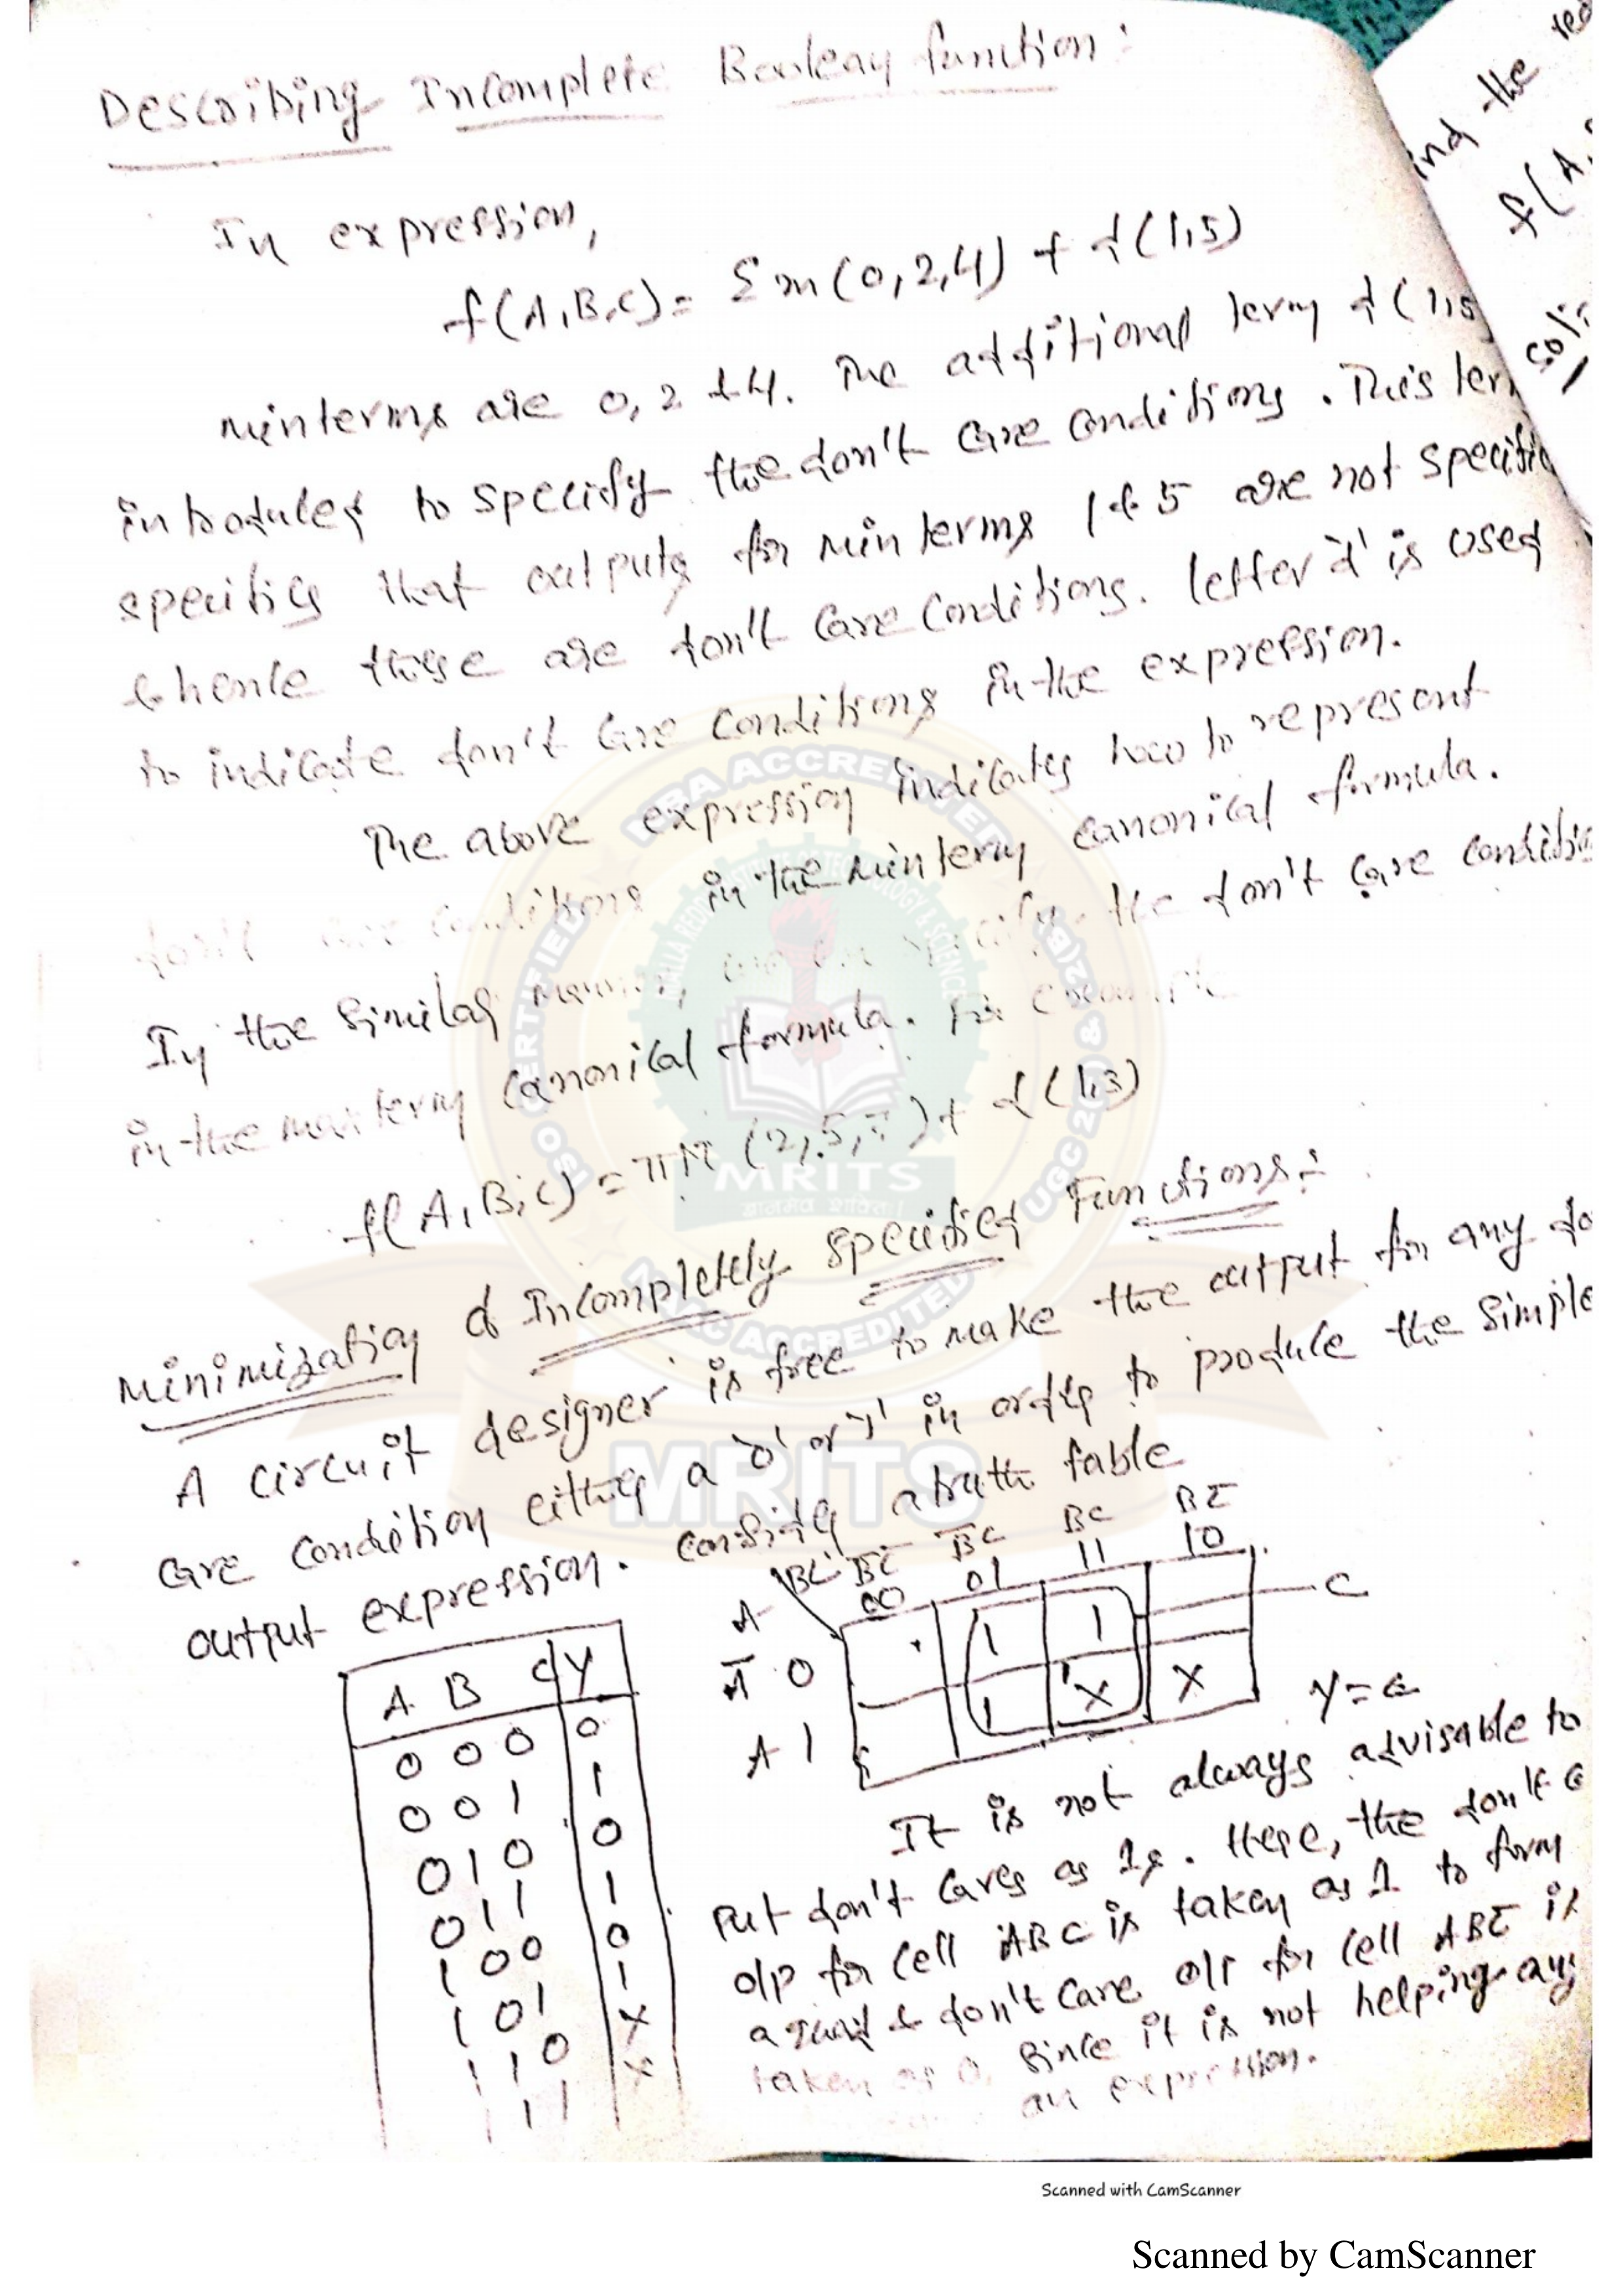 Describing Incomplete Boolean function:
In expression,
f(A,B,C) = Σm(0,2,4) + d(1,5)
minterms are 0, 2 & 4. The additional term d(1,5
introduced to specify the don't care conditions. This ter
specifies that outputs for minterms 1 & 5 are not specifie
& hence these are don't care conditions. letter 'd' is used
to indicate don't care conditions in the expression.
The above expression indicates how to represent
don't care conditions in the minterm canonical formula.
In the similar manner, we can specify the don't care conditio
in the maxterm canonical formula. For example
f(A,B,C) = πM (2,5,7) + d(1,3)
Minimization of Incompletely specified Functions:
A circuit designer is free to make the output for any do
care condition either a '0' or '1' in order to produce the simple
output expression. Consider a truth table
A B C Y
0 0 0 0
0 0 1 1
0 1 0 0
0 1 1 1
1 0 0 0
1 0 1 1
1 1 0 X
1 1 1 X
B̄C̄ B̄C BC BC̄
A BC 00 01 11 10
Ā 0 1 1 C
A 1 1 X X
Y = C
It is not always advisable to
put don't cares as 1s. Here, the don't c
o/p for cell ABC is taken as 1 to form
a quad & don't care o/p for cell ABC̄ is
taken as 0, since it is not helping any
an expression.
ind the
f(A,
NBA ACCREDITED
ISO CERTIFIED
UGC 2(f) & 12(B)
NAAC ACCREDITED
MALLA REDDY INSTITUTE OF TECHNOLOGY & SCIENCE
MRITS
MRITS
Scanned with CamScanner
Scanned by CamScanner